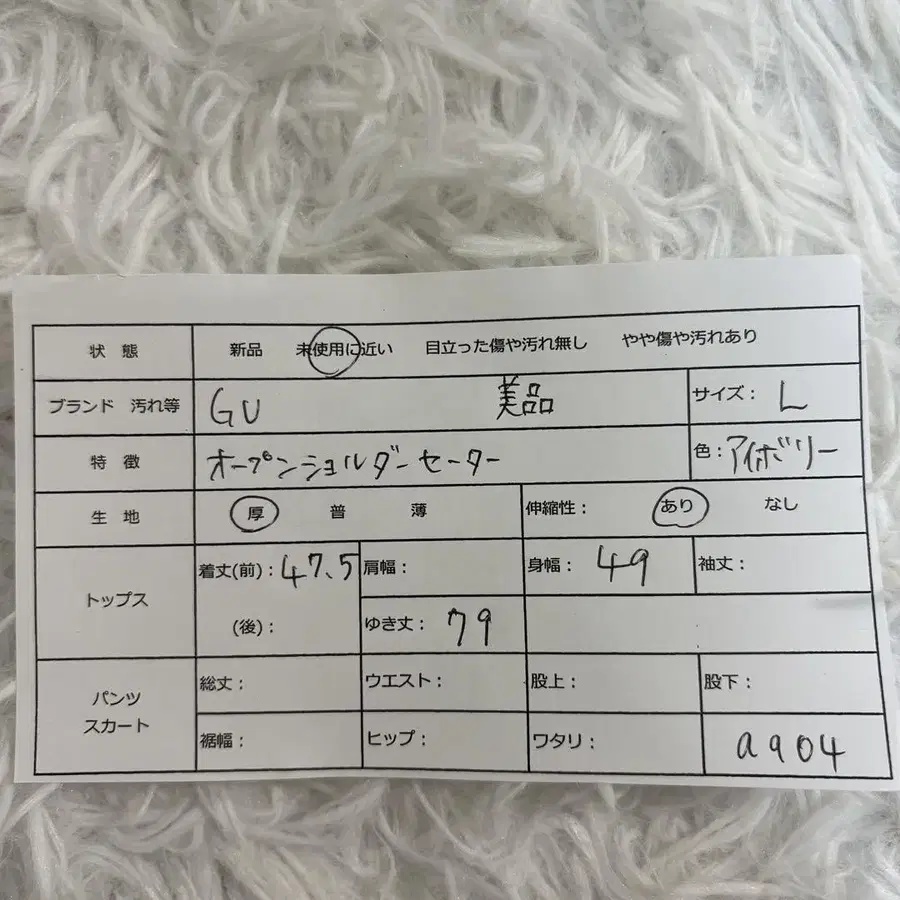 状 態 新品 未使用に近い 目立った傷や汚れ無し やや傷や汚れあり
ブランド 汚れ等 GU 美品 サイズ: L
特 徴 オープンショルダーセーター 色:アイボリー
生 地 厚 普 薄 伸縮性: あり なし
トップス 着丈(前):47.5 肩幅: 身幅: 49 袖丈:
(後): ゆき丈: 79
パンツ スカート 総丈: ウエスト: 股上: 股下:
裾幅: ヒップ: ワタリ: a904